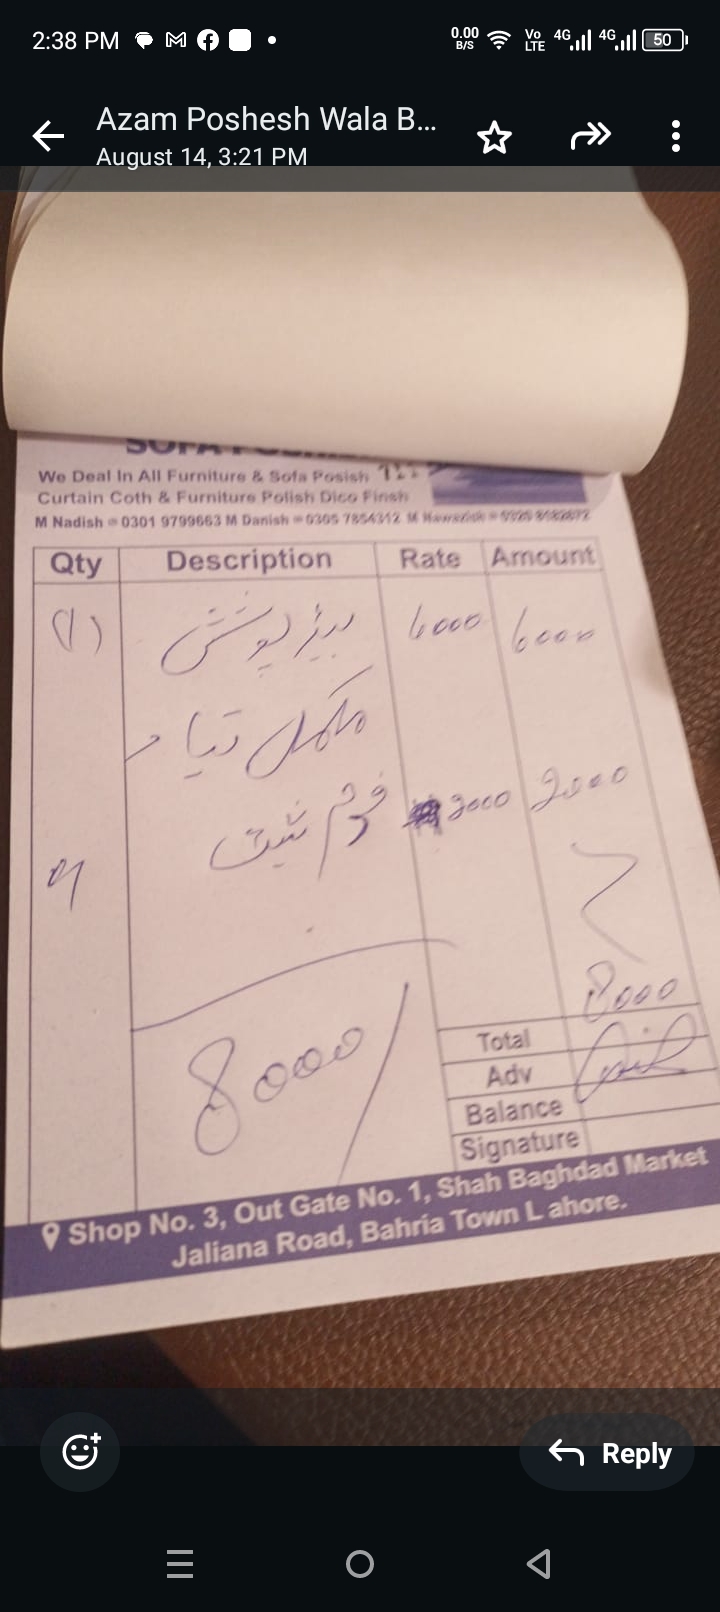 2:38 PM
0.00 B/S Vo LTE 4G 4G 50
Azam Poshesh Wala B...
August 14, 3:21 PM
We Deal In All Furniture & Sofa Posish
Curtain Coth & Furniture Polish Dico Finsh
M Nadish = 0301 9799663 M Danish = 0305 7854312 M
Qty Description Rate Amount
(1) بیڈ پوشش 6000 6000
مکمل تیار
فوم شیٹ 2000 2000
8000
8000/
Total
Adv
Balance
Signature
Shop No. 3, Out Gate No. 1, Shah Baghdad Market
Jaliana Road, Bahria Town L ahore.
Reply